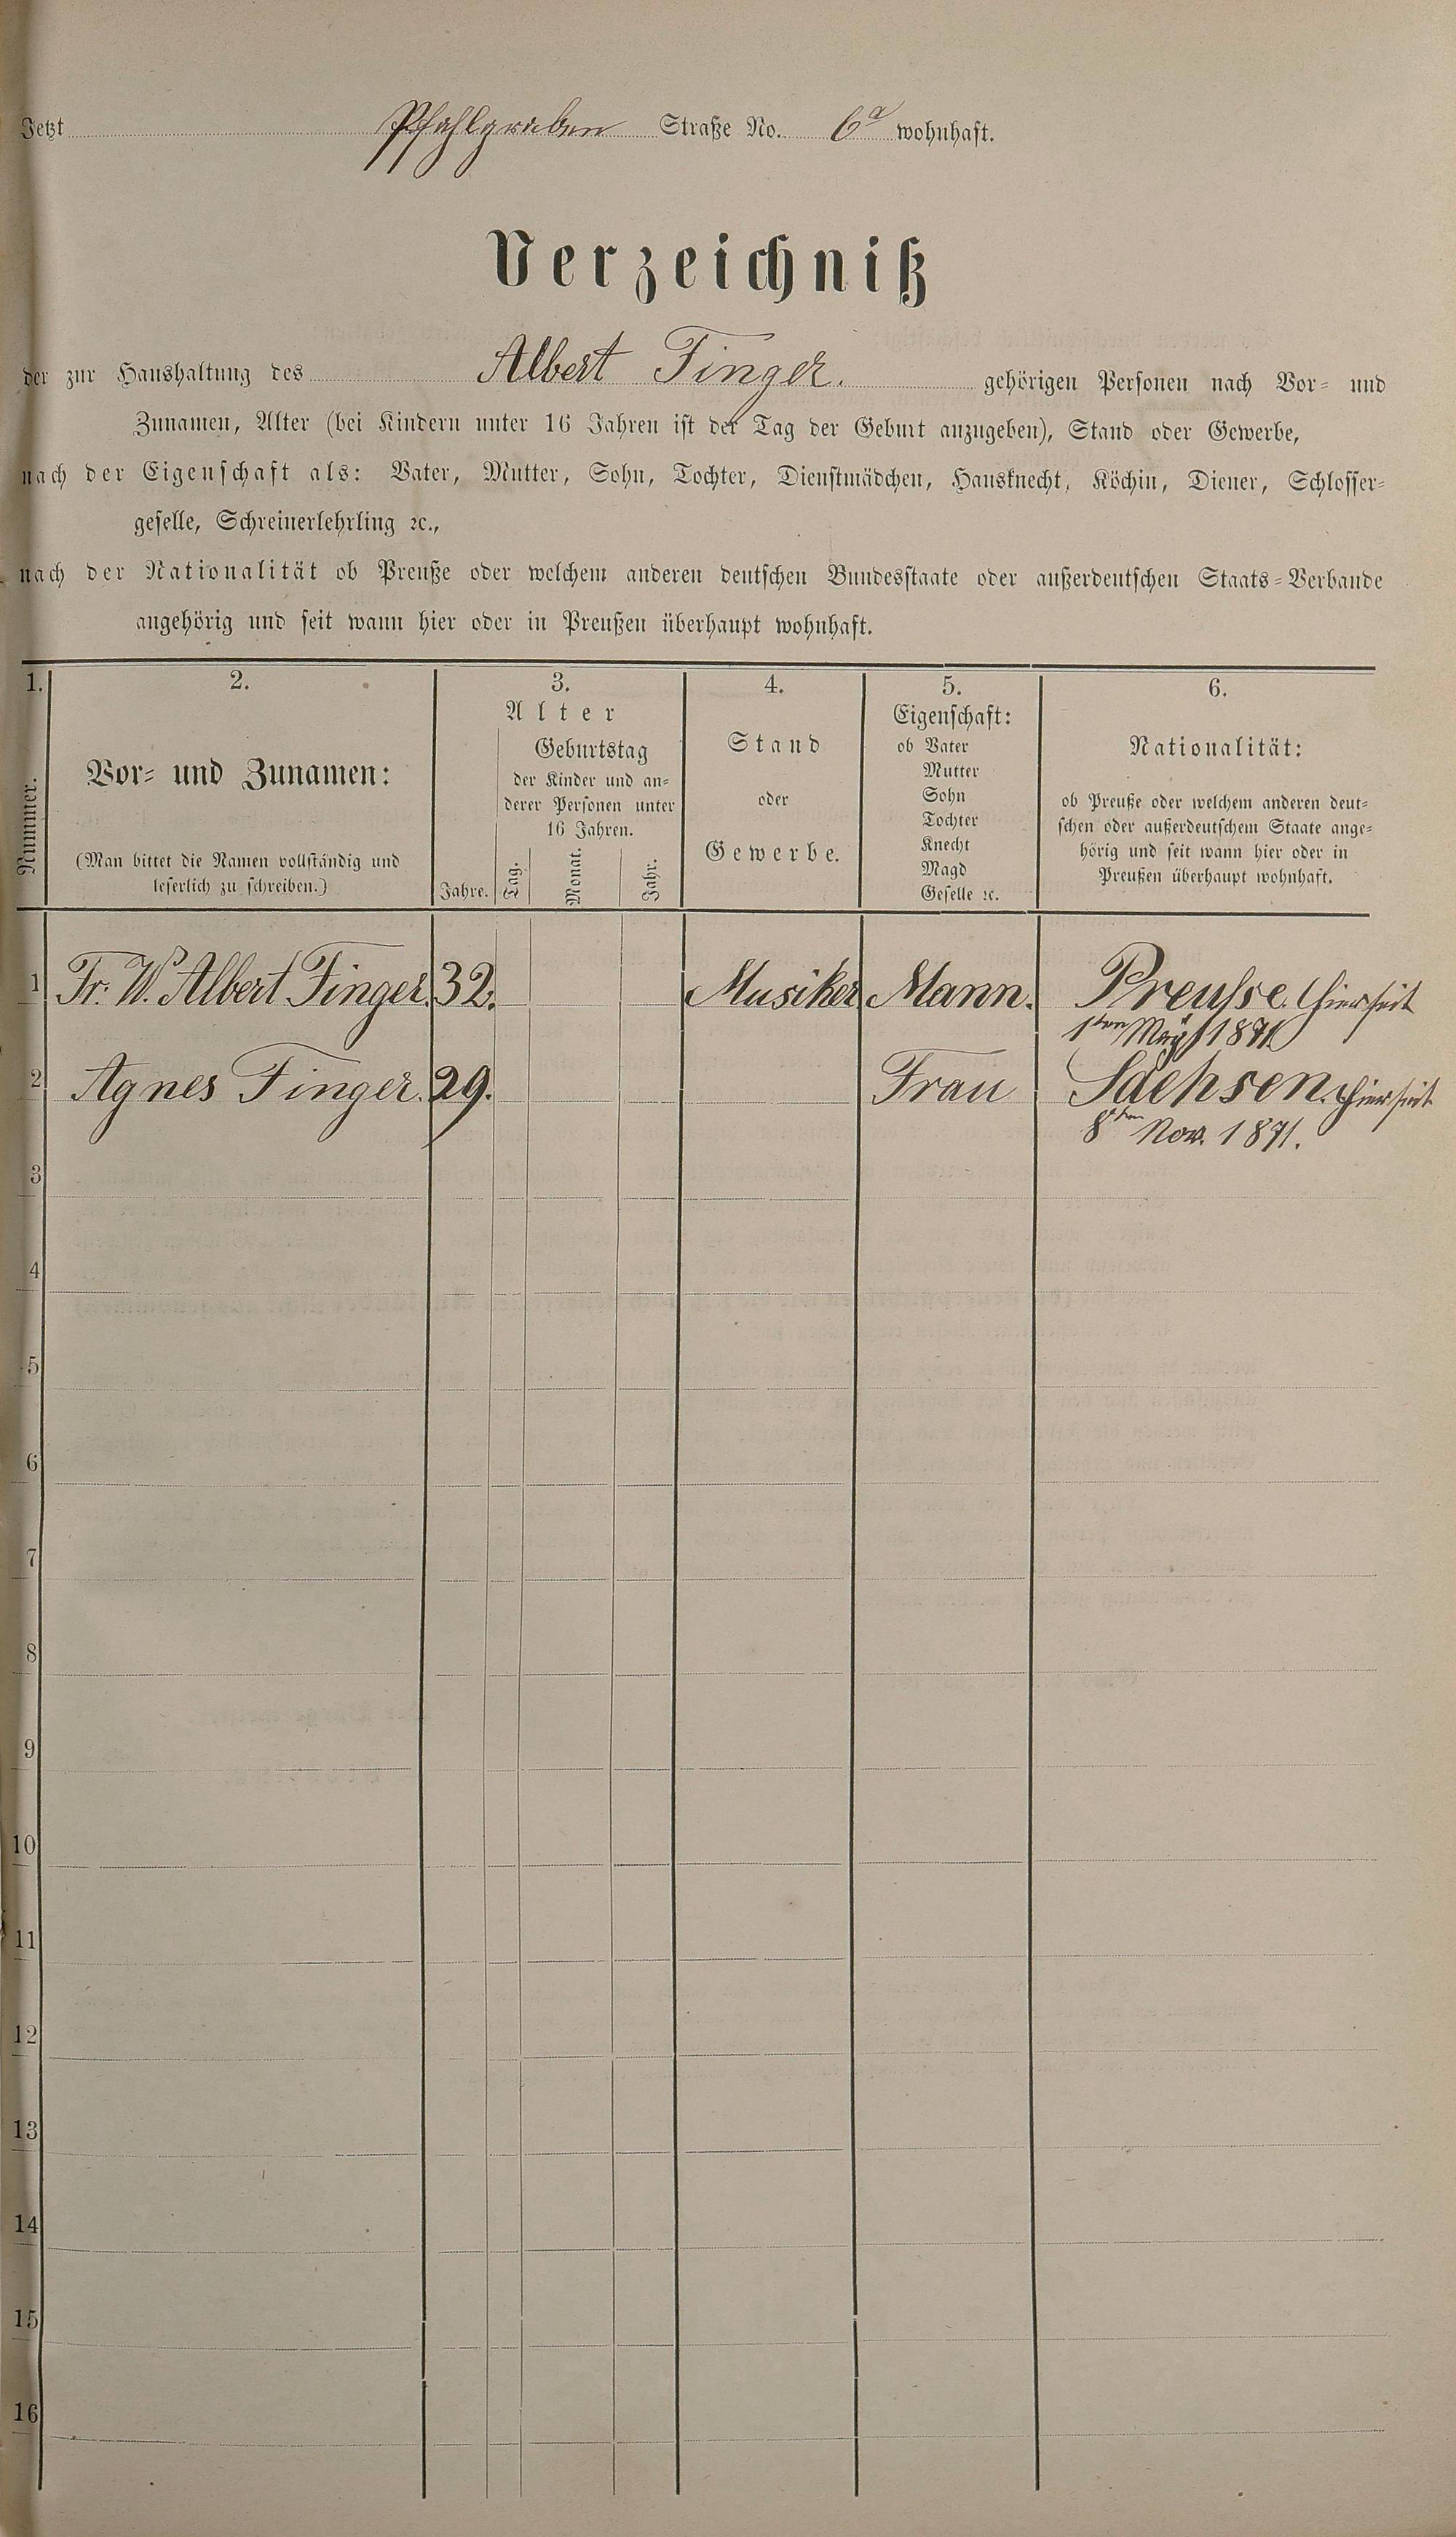 Jetzt Pfahlgraben Straße No. 6a wohnhaft.
Verzeichniß
der zur Haushaltung des Albert Finger. gehörigen Personen nach Vor- und
Zunamen, Alter (bei Kindern unter 16 Jahren ist der Tag der Geburt anzugeben), Stand oder Gewerbe,
nach der Eigenschaft als: Vater, Mutter, Sohn, Tochter, Dienstmädchen, Hausknecht, Köchin, Diener, Schlosser-
geselle, Schreinerlehrling ꝛc.,
nach der Nationalität ob Preuße oder welchem anderen deutschen Bundesstaate oder außerdeutschen Staats-Verbande
angehörig und seit wann hier oder in Preußen überhaupt wohnhaft.
1.
Nummer.
2.
Vor- und Zunamen:
(Man bittet die Namen vollständig und
leserlich zu schreiben.)
3.
Alter
Jahre.
Geburtstag
der Kinder und an-
derer Personen unter
16 Jahren.
Tag.
Monat.
Jahr.
4.
Stand
oder
Gewerbe.
5.
Eigenschaft:
ob Vater
Mutter
Sohn
Tochter
Knecht
Magd
Geselle ꝛc.
6.
Nationalität:
ob Preuße oder welchem anderen deut-
schen oder außerdeutschem Staate ange-
hörig und seit wann hier oder in
Preußen überhaupt wohnhaft.
1 Fr. W. Albert Finger. 32. Musiker Mann. Preusse. hier seit
1ten 1871
2 Agnes Finger. 29. Frau Sachsen. hier seit
8ten Nov. 1871.
3
4
5
6
7
8
9
10
11
12
13
14
15
16